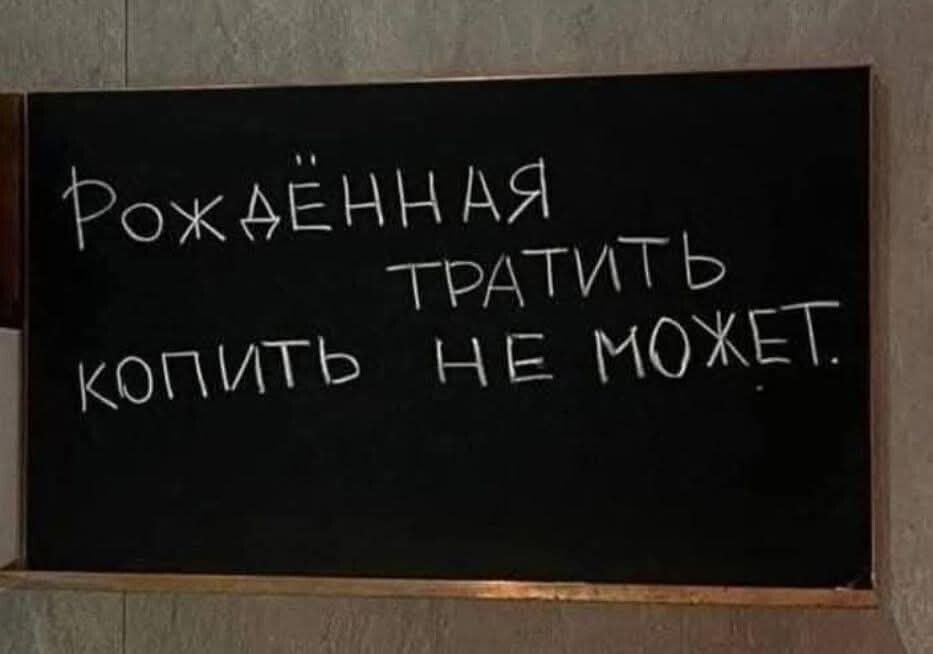 РОЖДЁННАЯ
ТРАТИТЬ
КОПИТЬ НЕ МОЖЕТ.